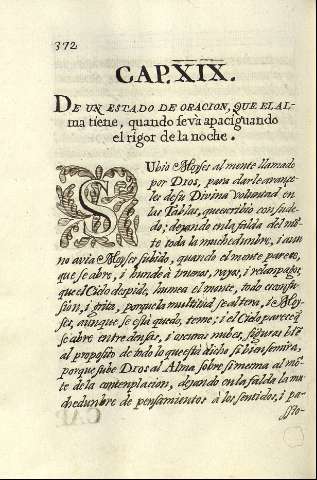 372
CAP. XIX.
DE UN ESTADO DE ORACION, QUE EL AL-
ma tiene, quando se và apaciguando
el rigor de la noche.
SUbio Moyses al monte llamado
por Dios, para darle arance-
les de su Divina Voluntad en
las Tablas, que escribio con su de-
do; dejando en la falda del mō-
te toda la muchedumbre, i aun
no avia Moyses subido, quando el monte parece,
que se abre, i hunde à truenos, rayos, i relanpagos,
que el Cielo despide, humea el monte, todo es confu-
sion, i grita, porque la multitud se altera, i Moy-
ses, aunque se està quedo, teme; i el Cielo parece q̄
se abre entre densas, i oscuras nubes, figuras biē
al proposito de todo lo que està dicho si bien se mira,
porque sube Dios al Alma sobre si mesma al mō-
te de la contenplacion, dejando en la falda la mu-
chedunbre de pensamientos à los sentidos, i pa-
ssio-